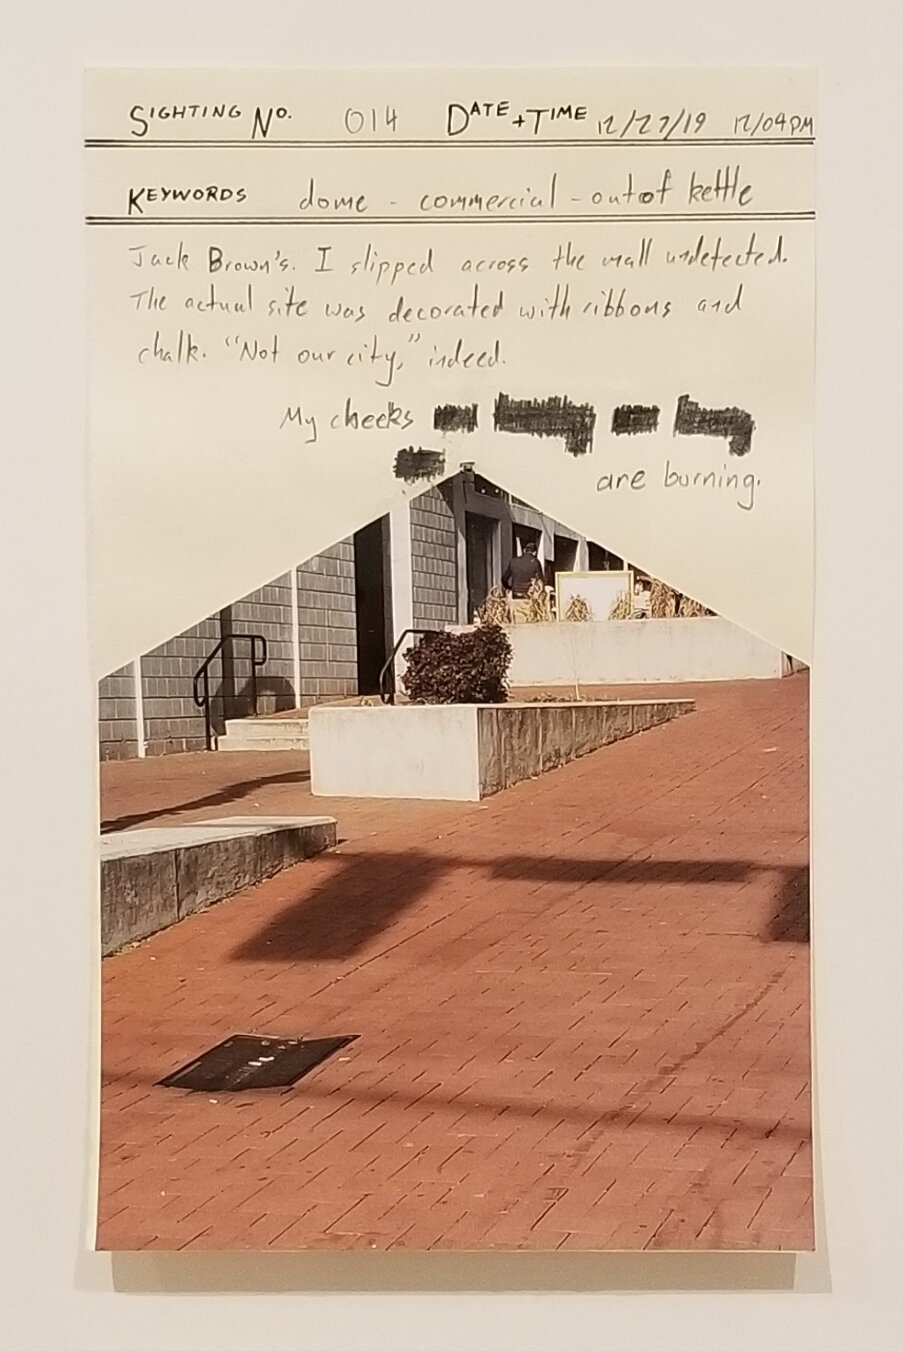 SIGHTING NO. 014 DATE + TIME 12/27/19 12/04PM
KEYWORDS dome - commercial - out of kettle
Jack Brown's. I slipped across the mall undetected.
The actual site was decorated with ribbons and
chalk. "Not our city," indeed.
My cheeks
are burning.